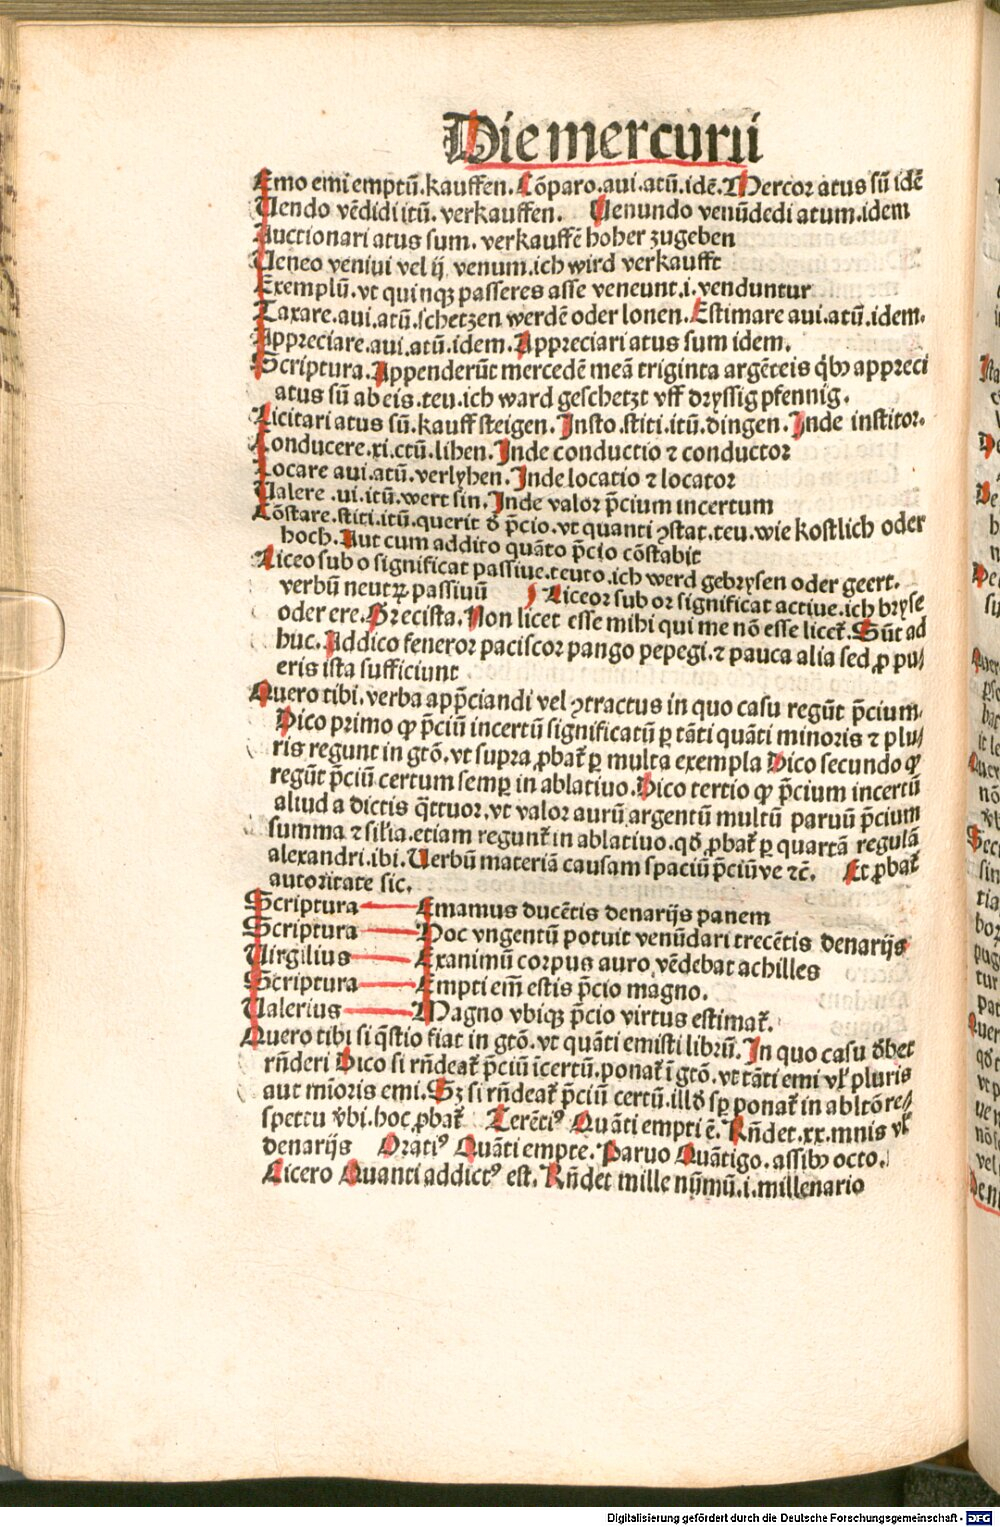 Die mercurii
Emo emi emptū.kauffen.Cōparo.aui.atū.idē.Mercor atus sū idē
Uendo vēdidi itū. verkauffen. Uenundo venūdedi atum.idem
Auctionari atus sum. verkauffē hoher zugeben
Ueneo veniui vel ij venum.ich wird verkaufft
Exemplū.vt quinqꝫ passeres asse veneunt.i.venduntur
Taxare.aui.atū.schetzen werdē oder lonen.Estimare aui.atū.idem.
Appreciare.aui.atū.idem.Appreciari atus sum idem.
Scriptura.Appenderūt mercedē meā triginta argēteis q̄bꝰ appreci
atus sū ab eis.teu.ich ward geschetzt vff dryssig pfennig.
Licitari atus sū.kauff steigen.Insto.stiti.itū.dingen.Inde institor.
Conducere.xi.ctū.lihen.Inde conductio ⁊ conductor
Locare aui.atū.verlyhen.Inde locatio ⁊ locator
Ualere .ui.itū.wert sin.Inde valor p̄cium incertum
Cōstare.stiti.itū.querit ð p̄cio.vt quanti ꝯstat.teu.wie kostlich oder
hoch.Aut cum addito quāto p̄cio cōstabit
Liceo sub o significat passiue.teuto.ich werd gebrysen oder geert.
verbū neutꝝ passiuū Liceor sub or significat actiue.ich bryse
oder ere.Grecista.Non licet esse mihi qui me nō esse licet̄.Sūt ad
huc.Addico feneror paciscor pango pepegi.⁊ pauca alia sed ꝓ pu/
eris ista sufficiunt
Quero tibi.verba app̄ciandi vel ꝯtractus in quo casu regūt p̄cium.
Dico primo ꝙ p̄ciū incertū significatū ꝑ tāti quāti minoris ⁊ plu/
ris regunt in gtō.vt supra ꝓbat̄ ꝑ multa exempla Dico secundo ꝙ
regūt p̄ciū certum semꝑ in ablatiuo.Dico tertio ꝙ p̄cium incertū
aliud a dictis q̄ttuor.vt valor aurū argentū multū paruū p̄cium
summa ⁊ sil̓ia.etiam regunt̄ in ablatiuo.qð ꝓbat̄ ꝑ quartā regulā
alexandri.ibi.Uerbū materiā causam spaciū p̄ciūve ⁊c̄. Et ꝓbat̄
autoritate sic.
Scriptura Emamus ducētis denarijs panem
Scriptura Hoc vngentū potuit venūdari trecētis denarijs
Uirgilius Exanimū corpus auro vēdebat achilles
Scriptura Empti em̄ estis p̄cio magno.
Ualerius Magno vbiqꝫ p̄cio virtus estimat̄.
Quero tibi si q̄stio fiat in gtō.vt quāti emisti librū.In quo casu ðbet
rn̄deri Dico si rn̄deat̄ p̄ciū īcertū.ponat̄ ī gtō.vt tāti emi vl̓ pluris
aut mīoris emi.Sꝫ si rn̄deat̄ p̄ciū certū.illð sꝑ ponat̄ in abltō re/
spectu v̓bi.hoc ꝓbat̄ Terētiꝰ Quāti empti ē.Rn̄det.xx.mnis vl̓
denarijs Oratiꝰ Quāti empte.Paruo Quātigo.assibꝰ octo.
Cicero Quanti addictꝰ est.Rn̄det mille nūmū.i.millenario
Digitalisierung gefördert durch die Deutsche Forschungsgemeinschaft - DFG